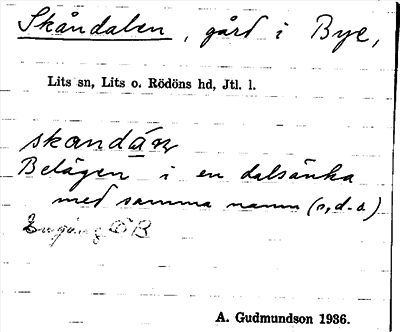 Skåndalen, gård i Bye,
Lits sn, Lits o. Rödöns hd, Jtl. l.
skandán
Belägen i en dalsänka
med samma namn (s, d. o)
A. Gudmundson 1936.